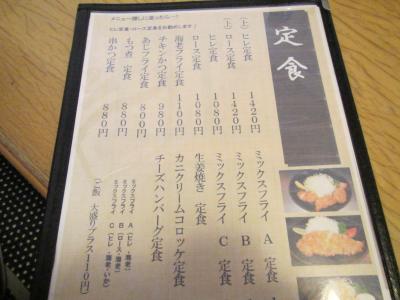 定食
メニュー探しに迷ったら…！
ヒレ定食・ロース定食をお勧めします！
（上）ヒレ定食 1420円
（上）ロース定食 1420円
ヒレ定食 1080円
ロース定食 1080円
海老フライ定食 1100円
チキンかつ定食 980円
あじフライ定食 800円
もつ煮 定食 880円
串かつ定食 880円
ミックスフライ A 定食
ミックスフライ B 定食
ミックスフライ C 定食
生姜焼き 定食
カニクリームコロッケ定食
チーズハンバーグ定食
ミックスフライ A（ヒレ・海老）
ミックスフライ B（ロース・海老）
ミックスフライ C（ヒレ・海老・いか）
（ご飯 大盛りプラス110円）